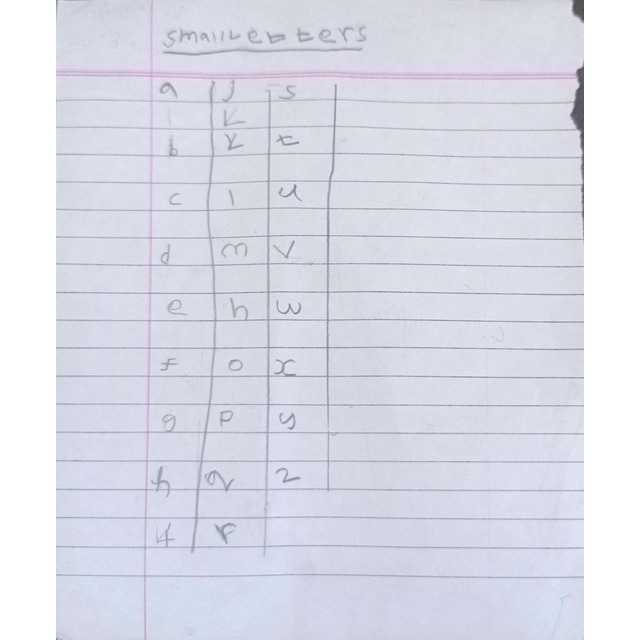 smallletters
a j s
k
b k t
c l u
d m v
e n w
f o x
g p y
h q z
r